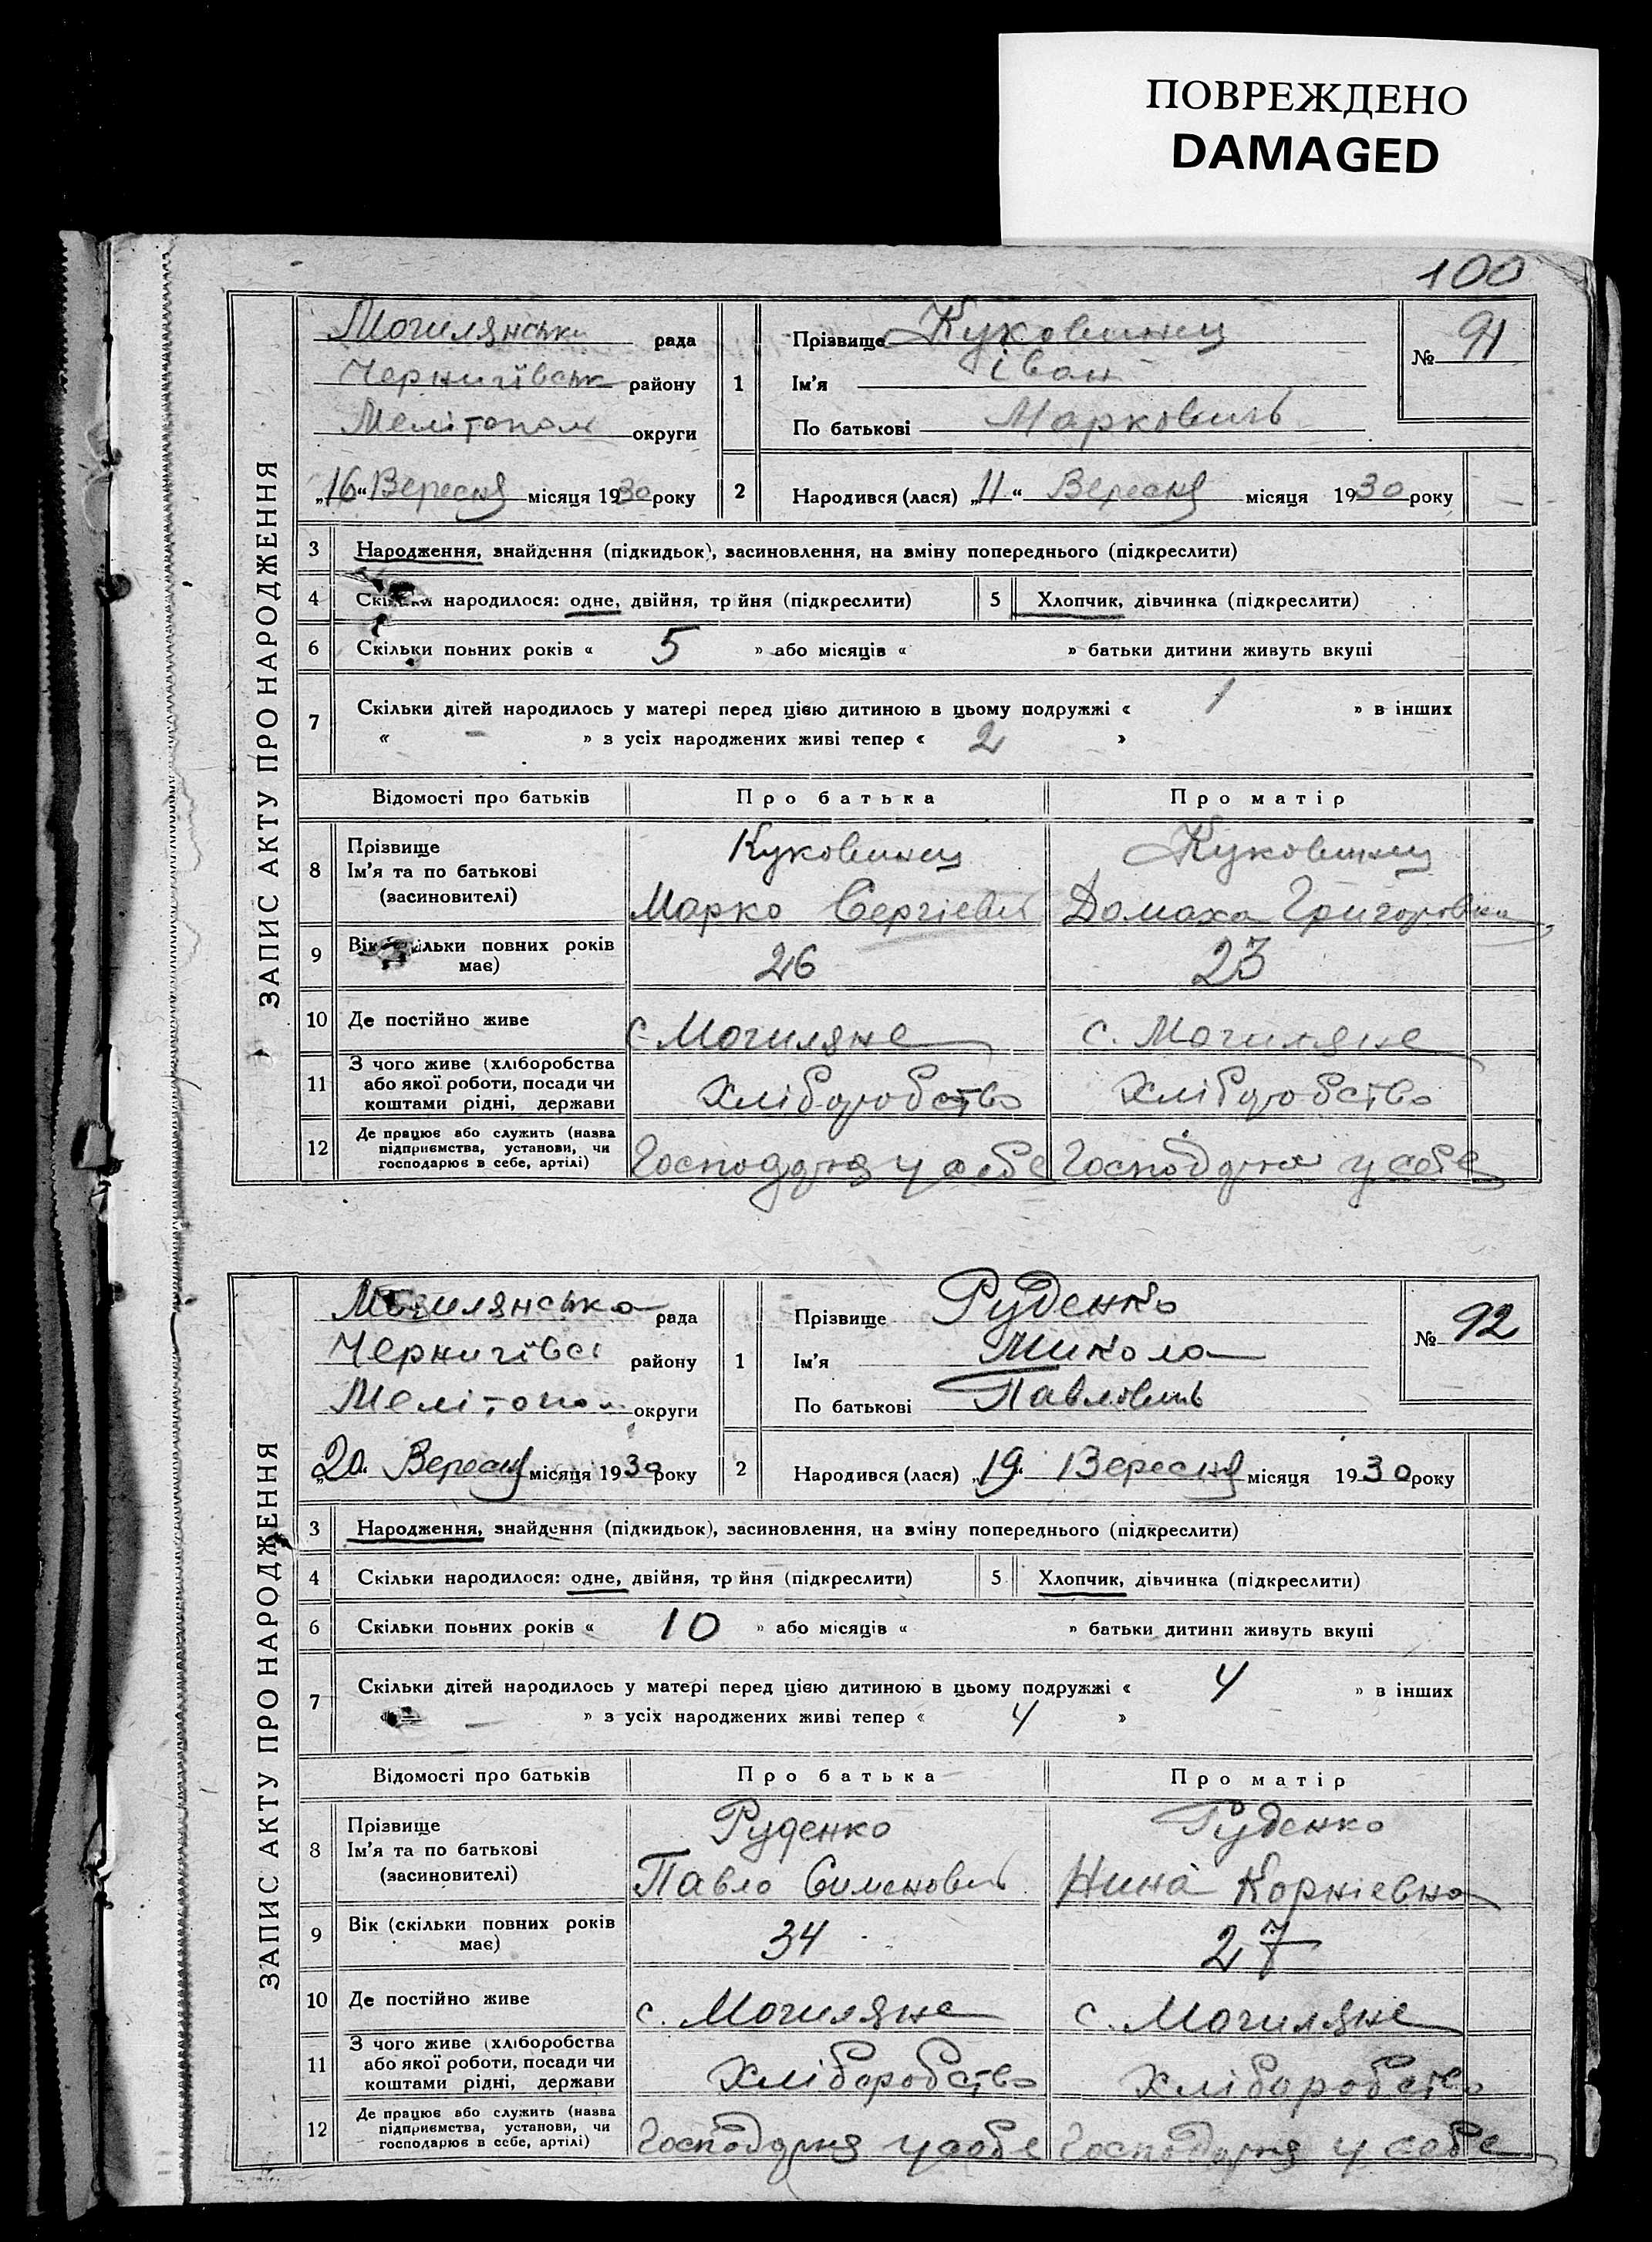 ПОВРЕЖДЕНО
DAMAGED
100
ЗАПИС АКТУ ПРО НАРОДЖЕННЯ
Могилянська рада
Чернигівськ району
Мелітополь округи
„16“ Вересня місяця 1930 року
1
Прізвище Куковинец
Ім'я Іван
По батькові Маркович
№ 91
2
Народився (лася) „11“ Вересня місяця 1930 року
3 Народження, знайдення (підкидьок), засиновлення, на зміну попереднього (підкреслити)
4 Скільки народилося: одне, двійня, трійня (підкреслити)
5 Хлопчик, дівчинка (підкреслити)
6 Скільки повних років « 5 » або місяців « » батьки дитини живуть вкупі
7 Скільки дітей народилось у матері перед цією дитиною в цьому подружжі « 1 » в інших
« — » з усіх народжених живі тепер « 2 »
Відомості про батьків Про батька Про матір
8
Прізвище Куковинец Куковинец
Ім'я та по батькові
(засиновителі) Марко Сергієвич Домаха Григоровна
9 Вік (скільки повних років має) 26 23
10 Де постійно живе с. Могиляне с. Могиляне
11 З чого живе (хліборобства
або якої роботи, посади чи Хліборобство Хліборобство
коштами рідні, держави
12 Де працює або служить (назва
підприємства, установи, чи
господарює в себе, артілі) Господарня у себе Господарня у себе
ЗАПИС АКТУ ПРО НАРОДЖЕННЯ
Могилянська рада
Чернигівсь району
Мелітопол округи
„20“ Вересня місяця 1930 року
1
Прізвище Руденко
Ім'я Микола
По батькові Павлович
№ 92
2
Народився (лася) „19“ Вересня місяця 1930 року
3 Народження, знайдення (підкидьок), засиновлення, на зміну попереднього (підкреслити)
4 Скільки народилося: одне, двійня, трійня (підкреслити)
5 Хлопчик, дівчинка (підкреслити)
6 Скільки повних років « 10 » або місяців « » батьки дитини живуть вкупі
7 Скільки дітей народилось у матері перед цією дитиною в цьому подружжі « 4 » в інших
« — » з усіх народжених живі тепер « 4 »
Відомості про батьків Про батька Про матір
8
Прізвище Руденко Руденко
Ім'я та по батькові
(засиновителі) Павло Сименович Нина Корніевна
9 Вік (скільки повних років має) 34 27
10 Де постійно живе с. Могиляне с. Могиляне
11 З чого живе (хліборобства
або якої роботи, посади чи Хліборобство Хліборобство
коштами рідні, держави
12 Де працює або служить (назва
підприємства, установи, чи
господарює в себе, артілі) Господарня у себе Господарня у себе